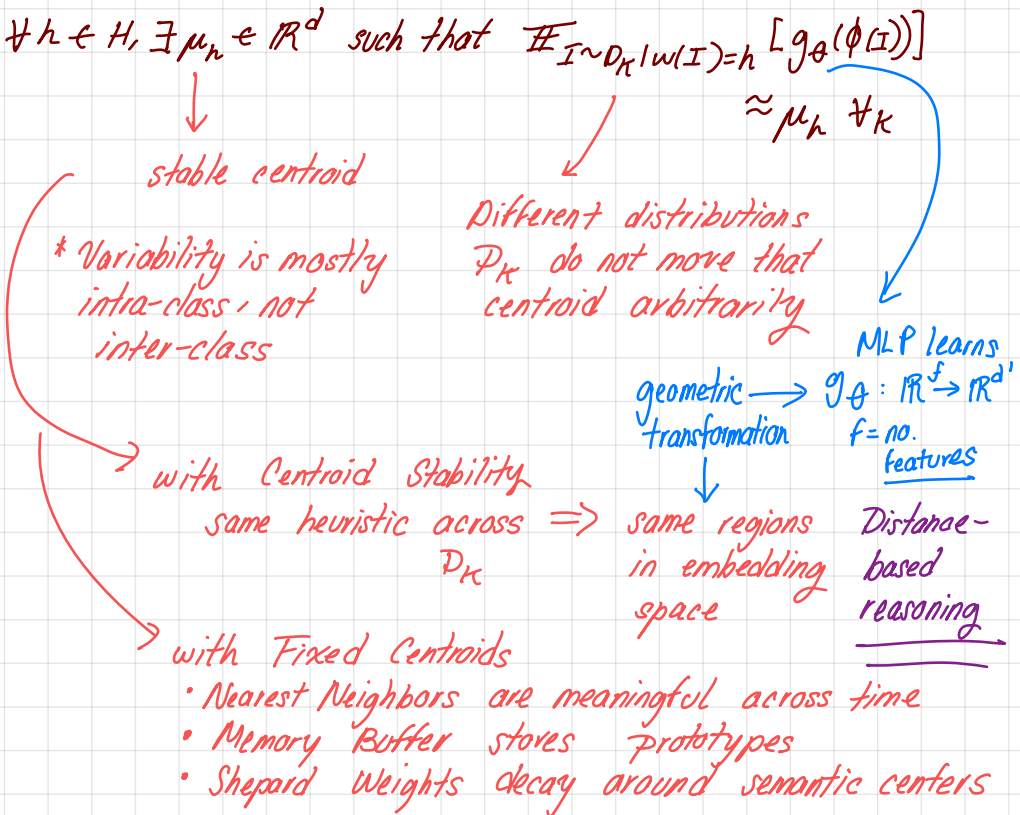 ∀h ∈ H, ∃ μ_h ∈ ℝ^d such that 𝔼_{I∼D_K|w(I)=h} [g_θ(ϕ(I))]
≈ μ_h ∀_K
stable centroid
* Variability is mostly
intra-class, not
inter-class
Different distributions
D_K do not move that
centroid arbitrarily
MLP learns
g_θ : ℝ^f → ℝ^d'
f = no.
features
geometric
transformation
with Centroid Stability
same heuristic across ⇒
D_K
same regions
in embedding
space
Distance-
based
reasoning
with Fixed Centroids
• Nearest Neighbors are meaningful across time
• Memory Buffer stores prototypes
• Shepard Weights decay around semantic centers